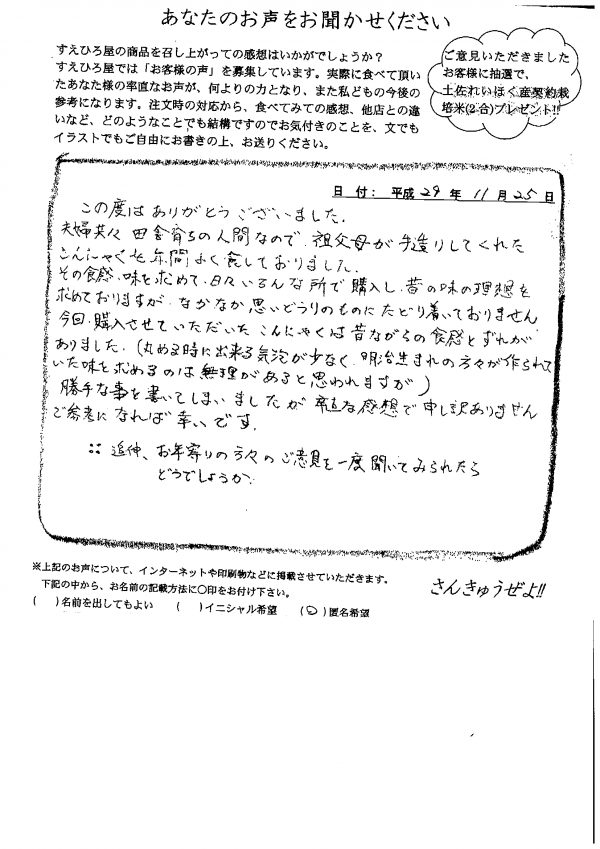 あなたのお声をお聞かせください
すえひろ屋の商品を召し上がっての感想はいかがでしょうか?
すえひろ屋では「お客様の声」を募集しています。実際に食べて頂い
たあなた様の率直なお声が、何よりの力となり、また私どもの今後の
参考になります。注文時の対応から、食べてみての感想、他店との違
いなど、どのようなことでも結構ですのでお気付きのことを、文でも
イラストでもご自由にお書きの上、お送りください。
ご意見いただきました
お客様に抽選で、
土佐れいほく産契約栽
培米(2合)プレゼント!!
日付: 平成 29 年 11 月 25 日
この度はありがとうございました.
夫婦共々 田舎育ちの人間なので、祖父母が手造りしてくれた
こんにゃくを年間よく食しておりました.
その食感、味を求めて、日々いろんな所で購入し、昔の味の理想を
求めておりますが、なかなか思いどうりのものにたどり着いておりません
今回、購入させていただいたこんにゃくは昔ながらの食感とずれが
ありました.(丸める時に出来る気泡が少なく、明治生まれの方々が作られて
いた味を求めるのは無理があると思われますが)
勝手な事を書いてしまいましたが率直な感想で申し訳ありません
ご参考になれば幸いです.
追伸、お年寄りの方々のご意見を一度聞いてみられたら
どうでしょうか?
※上記のお声について、インターネットや印刷物などに掲載させていただきます。
下記の中から、お名前の記載方法に〇印をお付け下さい。
( )名前を出してもよい ( )イニシャル希望 (〇)匿名希望
さんきゅうぜよ!!